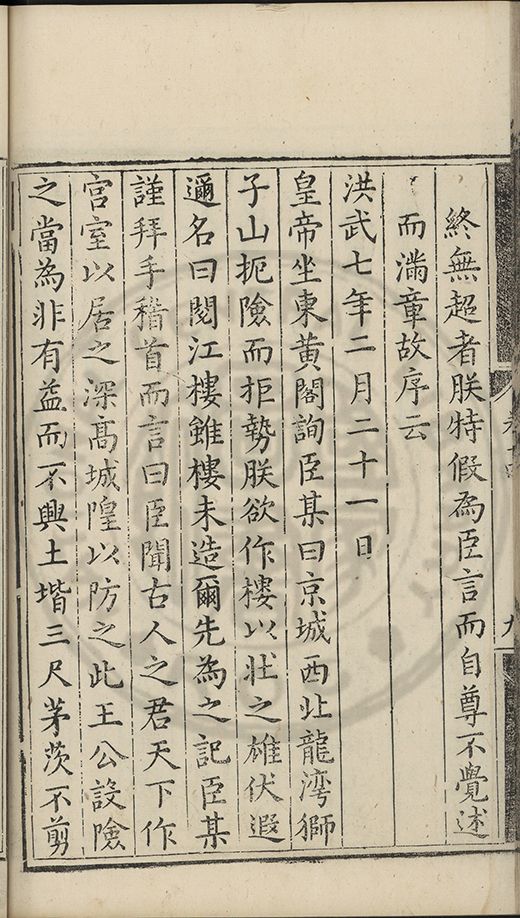 終無超者朕特假為臣言而自尊不覺述
而滿章故序云
洪武七年二月二十一日
皇帝坐東黄閣詢臣某曰京城西北龍灣獅
子山扼險而拒勢朕欲作樓以壯之雄伏遐
邇名曰閱江樓雖樓未造爾先為之記臣某
謹拜手稽首而言曰臣聞古人之君天下作
宫室以居之深髙城隍以防之此王公設險
之當為非有益而不興土堦三尺茅茨不剪